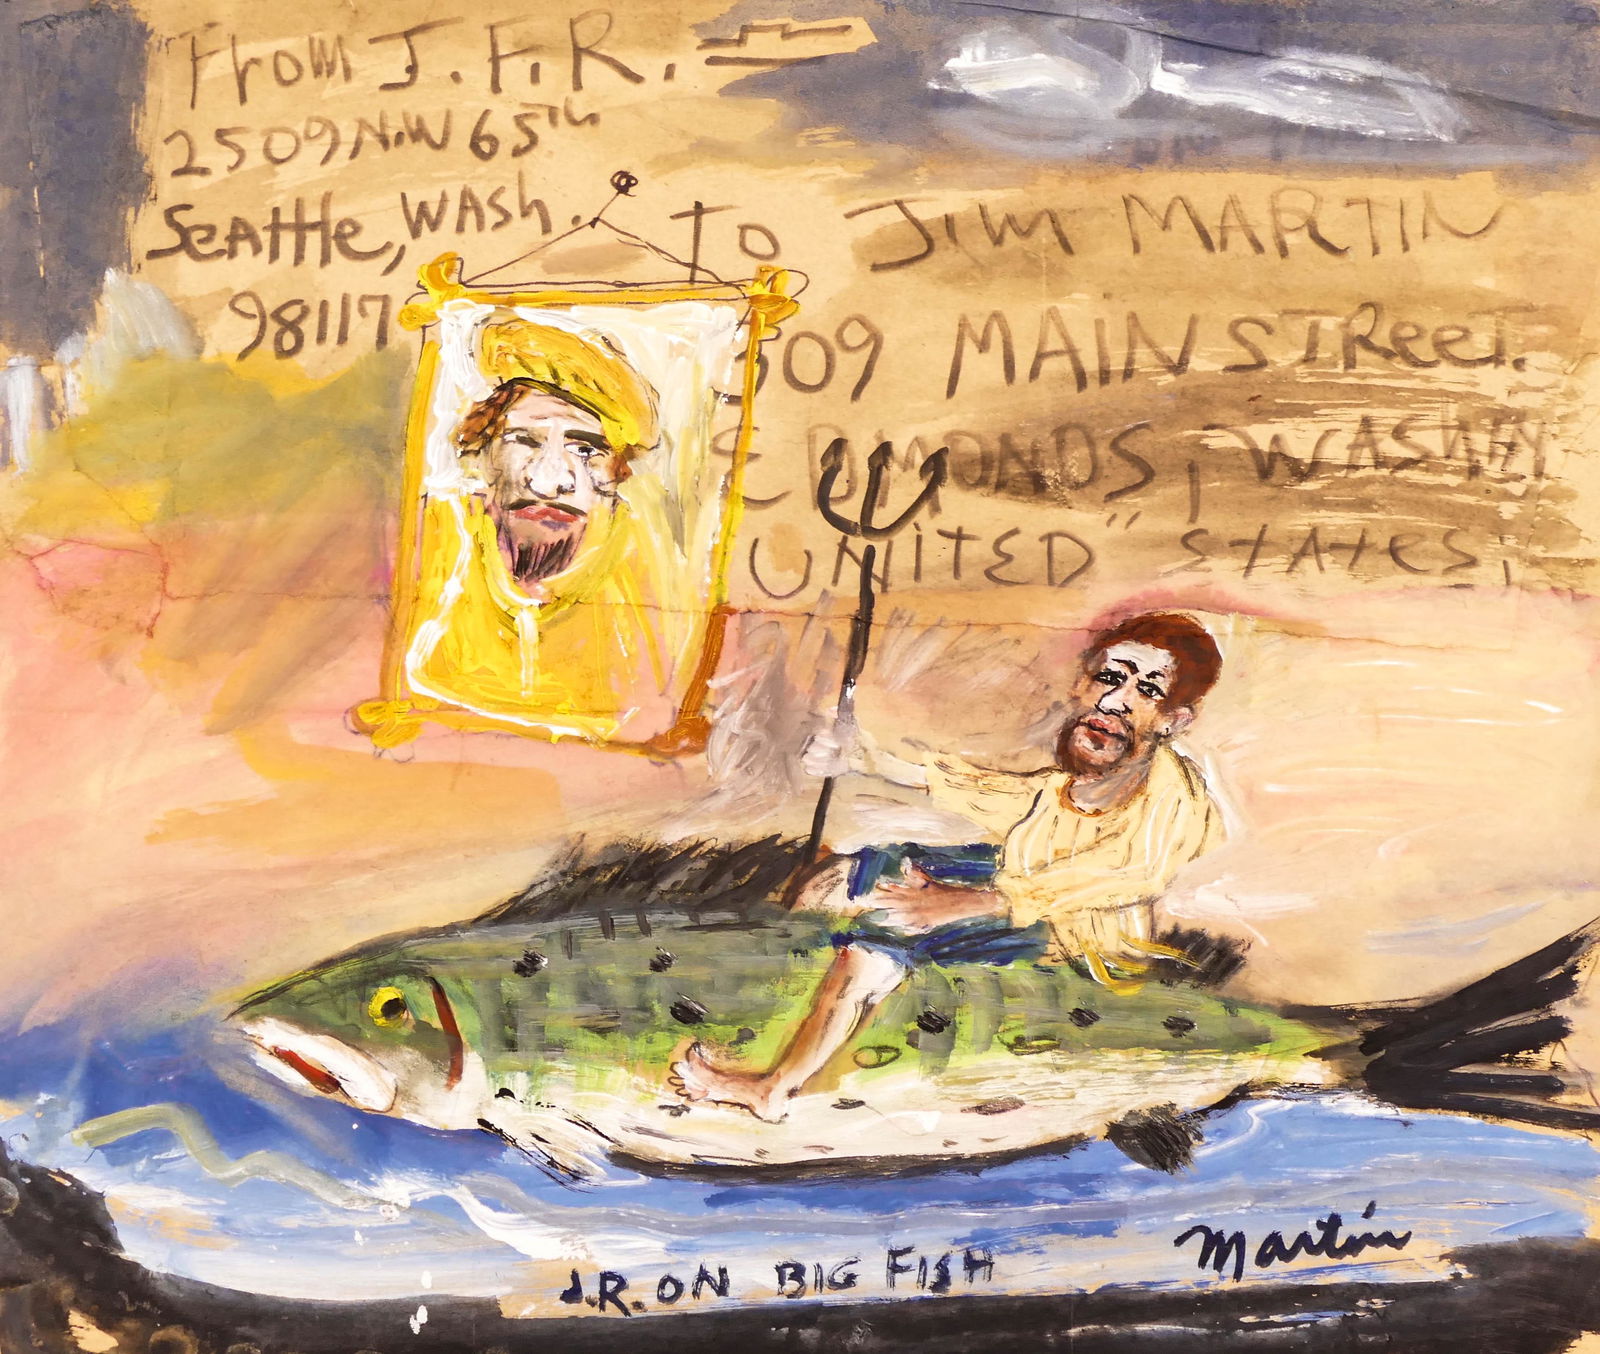 From J.F.R.
2509 N.W 65th
Seattle, WASH.
98117
To JIM MARTIN
509 MAIN STREET.
EDMONDS, WASH
"UNITED" STATES,
J.R. ON BIG FISH
Martin